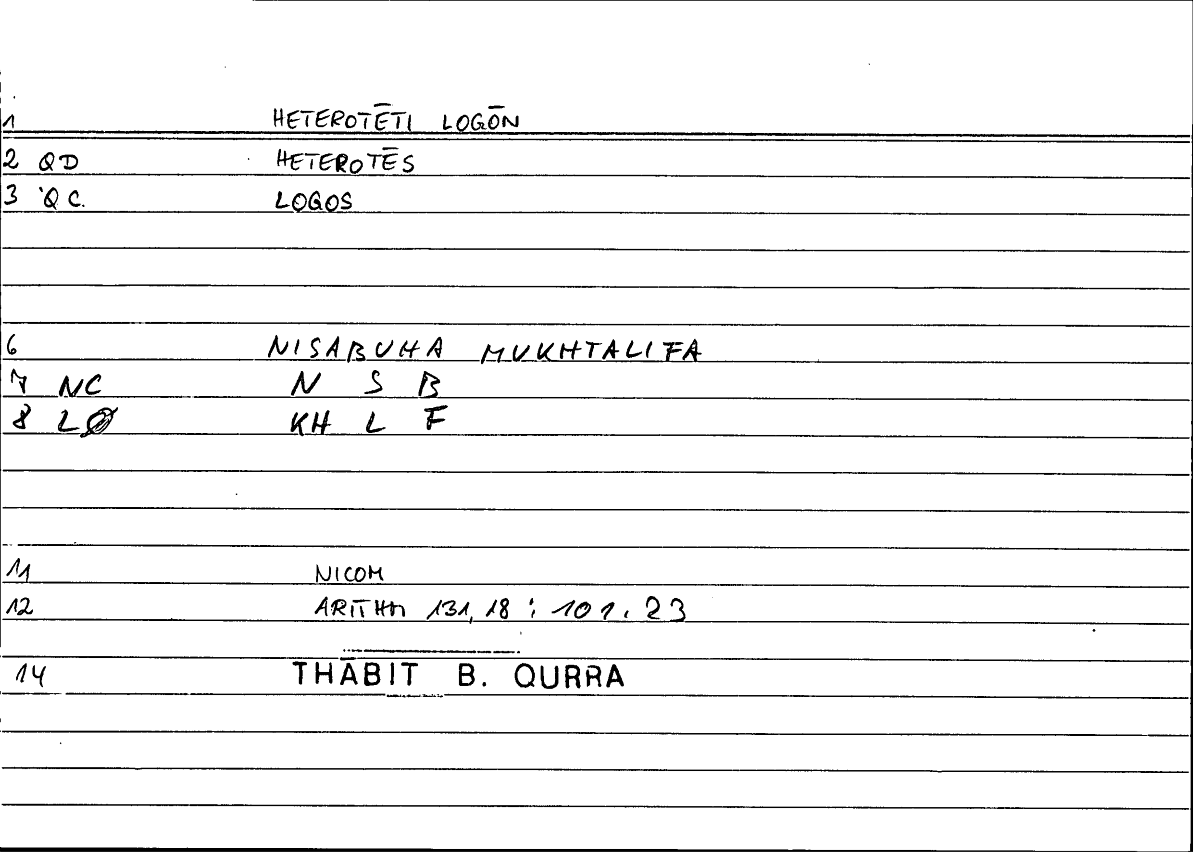 1 HETEROTĒTI LOGŌN
2 QD HETEROTĒS
3 QC. LOGOS
6 NISABUHA MUKHTALIFA
7 NC N S B
8 LØ KH L F
11 NICOM
12 ARITHM 131,18 : 101.23
14 THĀBIT B. QURRA